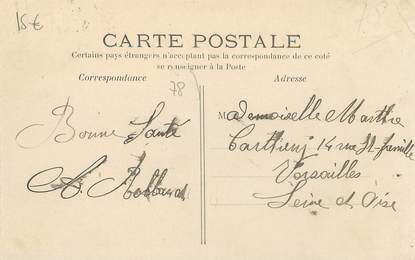 15€
CARTE POSTALE
Certains pays étrangers n'acceptant pas la correspondance de ce coté
se renseigner à la Poste
Correspondance
Adresse
78
Bonne Santé
A.
Mademoiselle Marthe
14 rue St-famille
Versailles
Seine et Oise